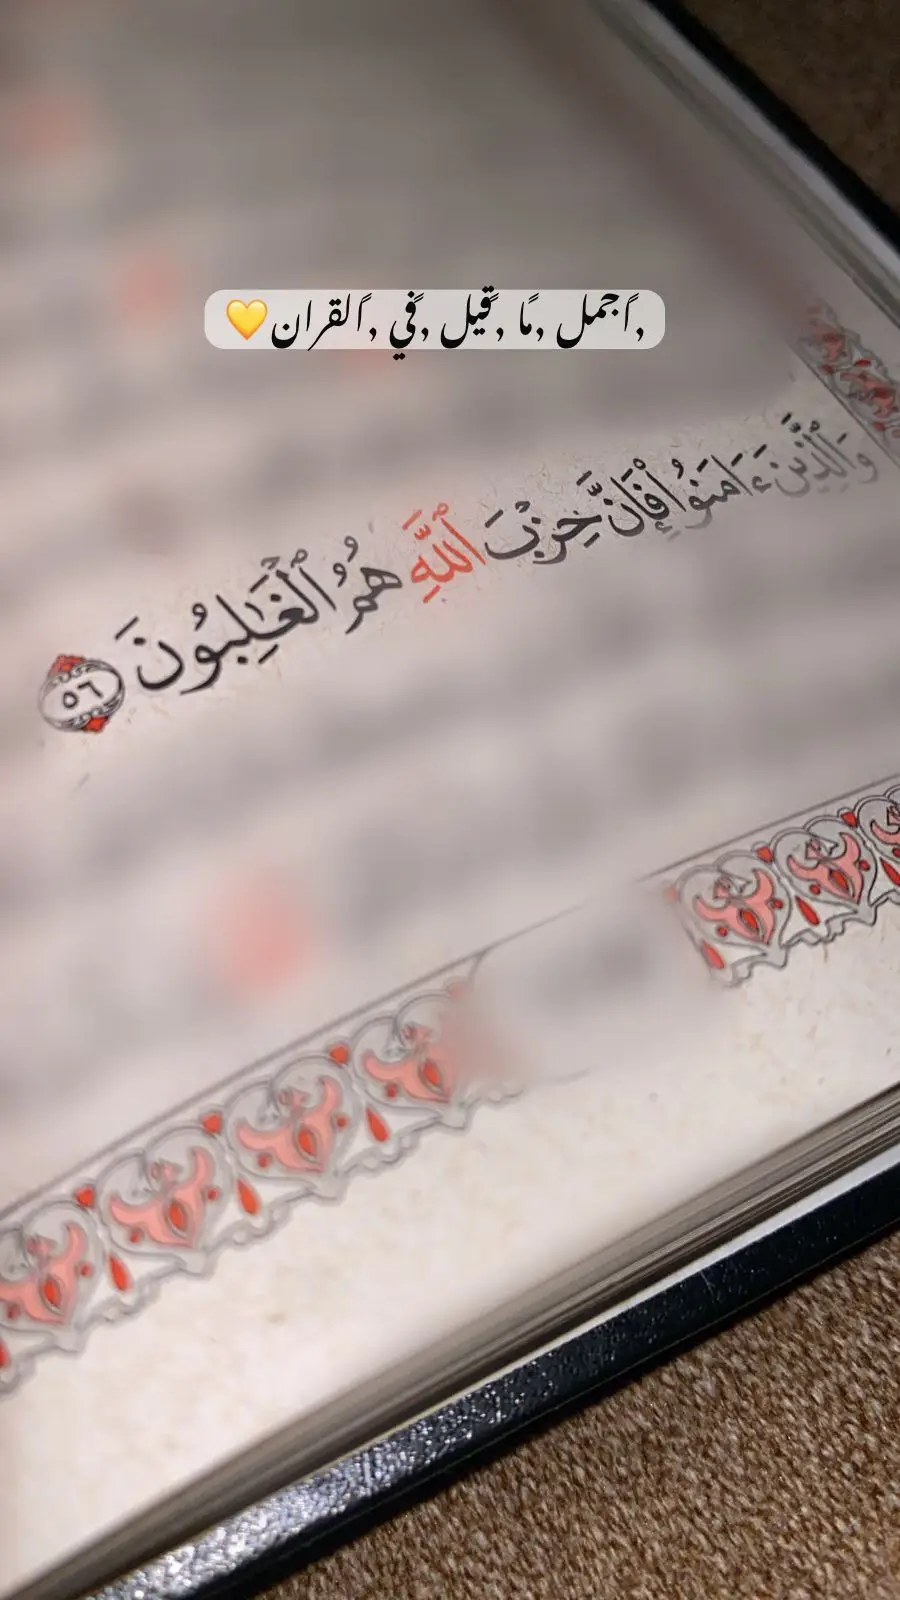 ,أجمل ,مًا ,قيل ,في ,القران💛
وَٱلَّذِينَ ءَامَنُوا۟ فَإِنَّ حِزْبَ ٱللَّهِ هُمُ ٱلْغَـٰلِبُونَ ٥٦